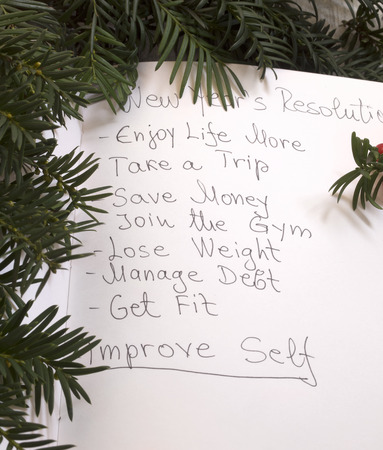 New Year's Resolutio
- Enjoy Life More
Take a Trip
Save Money
Join the Gym
- Lose Weight
- Manage Debt
- Get Fit
Improve Self